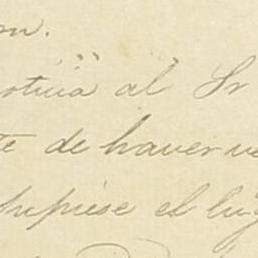 on.
oticia al Sr
te de haver ve
supiese el lug